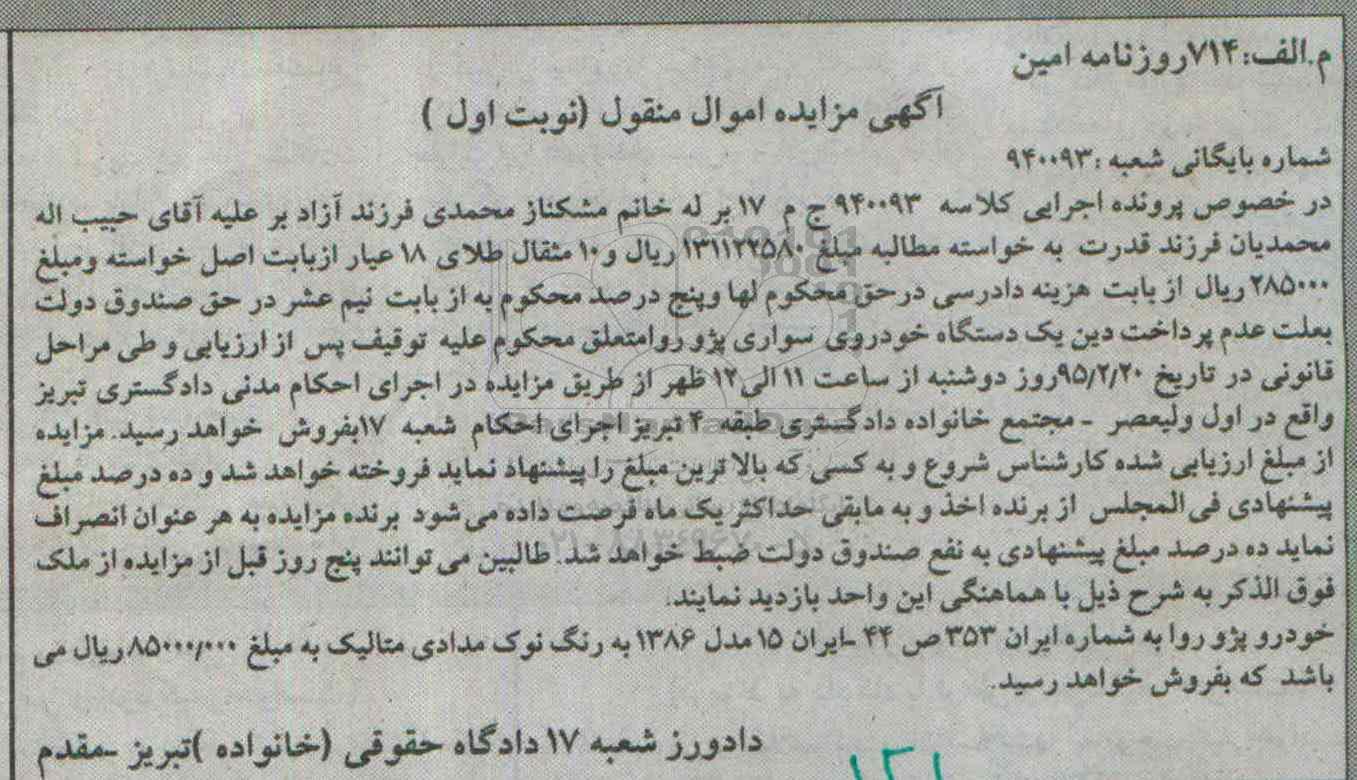 م.الف:۷۱۴روزنامه امین
آگهی مزایده اموال منقول (نوبت اول )
شماره بایگانی شعبه :۹۴۰۰۹۳
در خصوص پرونده اجرایی کلاسه ۹۴۰۰۹۳ ج م ۱۷ بر له خانم مشکناز محمدی فرزند آزاد بر علیه آقای حبیب اله
محمدیان فرزند قدرت به خواسته مطالبه مبلغ ۱۳۱۱۲۲۵۸۰ ریال و۱۰ مثقال طلای ۱۸ عیار ازبابت اصل خواسته ومبلغ
۲۸۵۰۰۰ ریال از بابت هزینه دادرسی درحق محکوم لها وپنج درصد محکوم به از بابت نیم عشر در حق صندوق دولت
بعلت عدم پرداخت دین یک دستگاه خودروی سواری پژو روامتعلق محکوم علیه توقیف پس از ارزیابی و طی مراحل
قانونی در تاریخ ۹۵/۲/۲۰روز دوشنبه از ساعت ۱۱ الی۱۲ ظهر از طریق مزایده در اجرای احکام مدنی دادگستری تبریز
واقع در اول ولیعصر - مجتمع خانواده دادگستری طبقه ۴ تبریز اجرای احکام شعبه ۱۷بفروش خواهد رسید. مزایده
از مبلغ ارزیابی شده کارشناس شروع و به کسی که بالا ترین مبلغ را پیشنهاد نماید فروخته خواهد شد و ده درصد مبلغ
پیشنهادی فی المجلس از برنده اخذ و به مابقی حداکثر یک ماه فرصت داده می شود برنده مزایده به هر عنوان انصراف
نماید ده درصد مبلغ پیشنهادی به نفع صندوق دولت ضبط خواهد شد. طالبین می توانند پنج روز قبل از مزایده از ملک
فوق الذکر به شرح ذیل با هماهنگی این واحد بازدید نمایند.
خودرو پژو روا به شماره ایران ۳۵۳ ص ۴۴ -ایران ۱۵ مدل ۱۳۸۶ به رنگ نوک مدادی متالیک به مبلغ ۸۵۰۰۰/۰۰۰ ریال می
باشد که بفروش خواهد رسید.
دادورز شعبه ۱۷ دادگاه حقوقی (خانواده )تبریز -مقدم